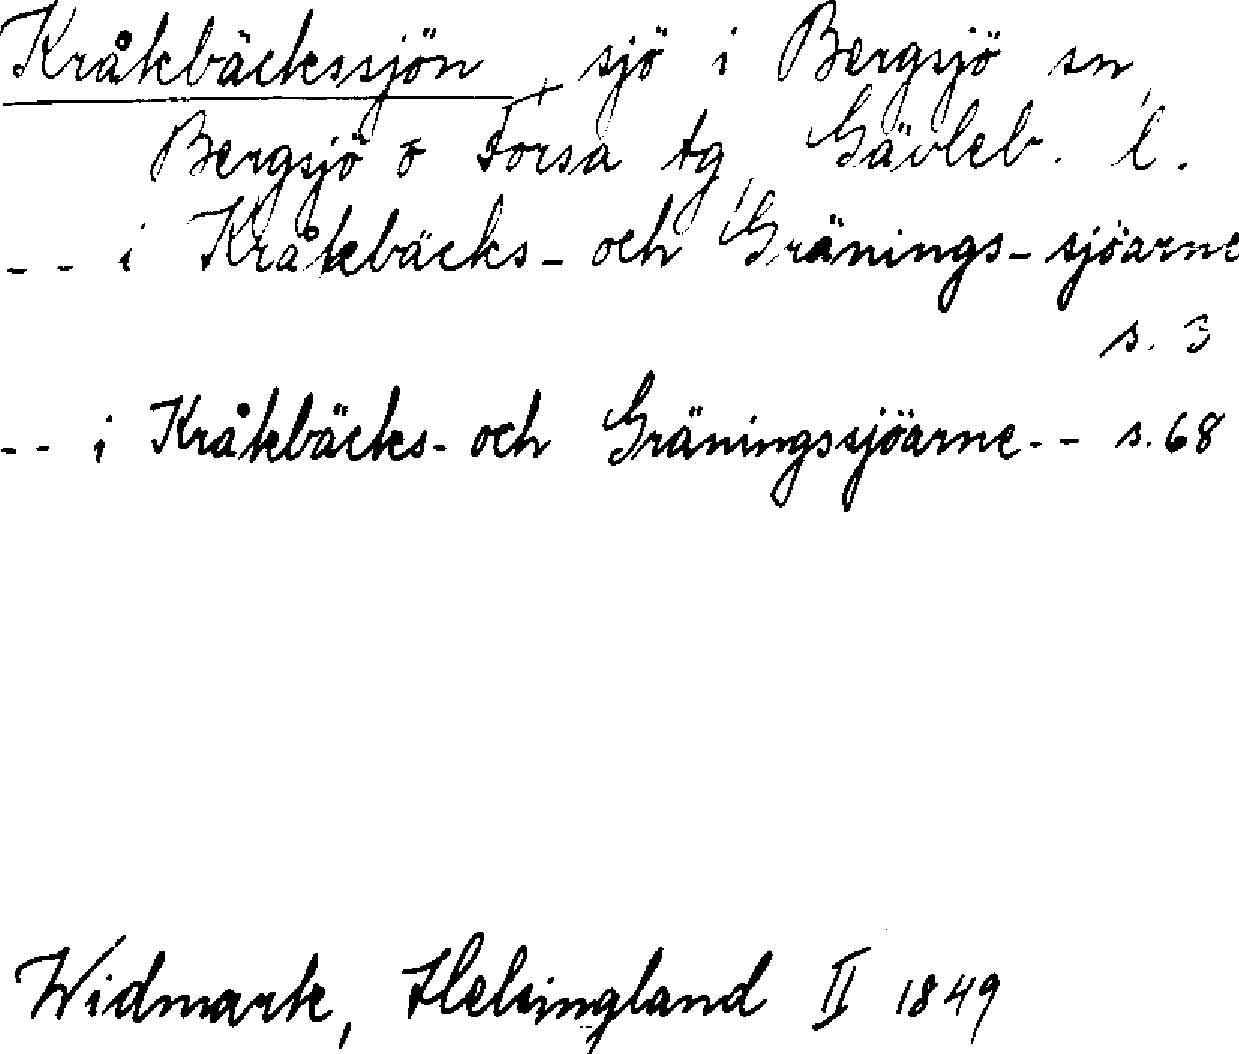 Kråkbäckssjön, sjö i Bergsjö sn,
Bergsjö o Forsa tg, Gävleb. l.
-- i Kråkbäcks- och Gränings-sjöarne
s. 3
-- i Kråkbäcks- och Gräningssjöarne -- s. 68
Widmark, Helsingland II 1849